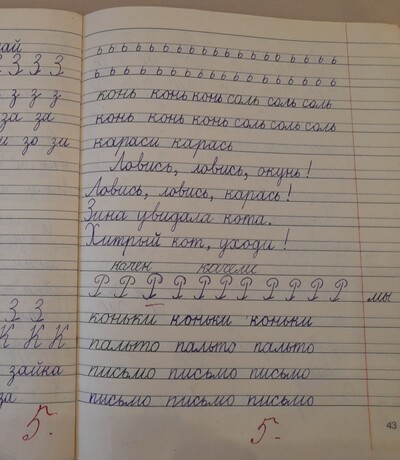 ай
З З З
ь ь ь ь ь ь ь ь ь ь ь ь ь ь ь ь ь ь ь
ь ь ь ь ь ь ь ь ь ь ь ь ь ь ь ь ь ь
з з з
конь конь конь соль соль соль
за за
конь конь конь соль соль соль
зо зи
караси карась
Ловись, ловись, окунь!
Ловись, ловись, карась!
Зина увидала кота.
Хитрый кот, уходи!
качели
Р Р Р Р Р Р Р Р Р Р Р
мы
З З
коньки коньки коньки
К К К
пальто пальто пальто
зайка
письмо письмо письмо
за
письмо письмо письмо
5.
5.
43